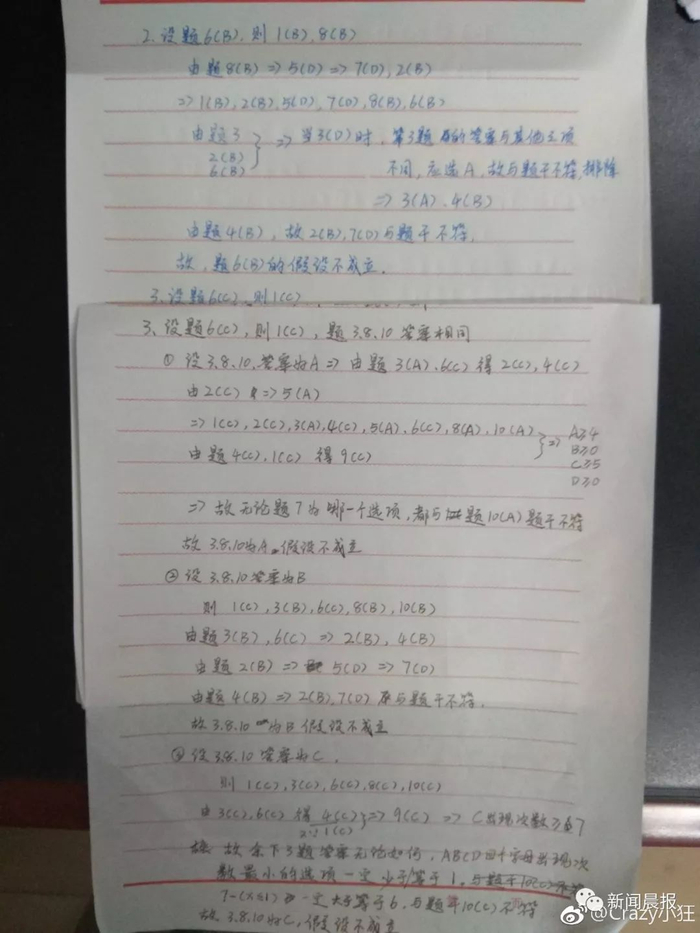 2. 设题6(B), 则 1(B), 8(B)
由题8(B) => 5(D) => 7(D), 2(B)
=> 1(B), 2(B), 5(D), 7(D), 8(B), 6(B)
由题3
2(B)
6(B)
=> 当3(D)时, 第3题的答案与其他三项
不同, 应选A, 故与题干不符, 排除
=> 3(A), 4(B)
由题4(B), 故2(B), 7(D)与题干不符.
故, 题6(B)的假设不成立.
3. 设题6(C), 则1(C)
3. 设题6(C), 则1(C), 题3.8.10 答案相同
① 设3.8.10.答案为A => 由题3(A).6(C) 得 2(C), 4(C)
由2(C) => 5(A)
=> 1(C), 2(C), 3(A), 4(C), 5(A), 6(C), 8(A), 10(A)
由题4(C), 1(C) 得 9(C)
=>
A≥4
B≥0
C≥5
D≥0
=> 故无论题7为哪一个选项, 都与题10(A)题干不符
故 3.8.10为A. 假设不成立
② 设3.8.10答案为B
则 1(C), 3(B), 6(C), 8(B), 10(B)
由题3(B), 6(C) => 2(B), 4(B)
由题2(B) => 5(D) => 7(D)
由题4(B) => 2(B), 7(D) 与题干不符.
故3.8.10为B 假设不成立
③ 设3.8.10 答案为C.
则 1(C), 3(C), 6(C), 8(C), 10(C)
由3(C), 6(C) 得 4(C)
1(C)
=> 9(C) => C出现次数≥7
故余下3题答案无论如何, ABCD四个字母出现次
数最小的选项一定少于等于1,
7-(x≤1) 一定大于等于6, 与题干10(C)不符
故3.8.10为C, 假设不成立
新闻晨报
@Crazy小狂